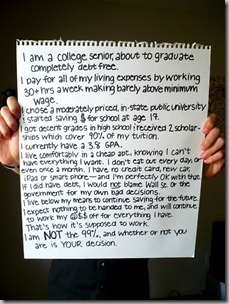 I am a college senior, about to graduate
completely debt free.
I pay for all of my living expenses by working
30+ hrs a week making barely above minimum
wage.
I chose a moderately priced, in-state public university
& started saving $ for school at age 17.
I got decent grades in high school & received 2 scholar-
ships which cover 90% of my tuition.
I currently have a 3.8 GPA.
I live comfortably in a cheap apt., knowing I can't
have everything I want. I don't eat out every day, or
even once a month. I have no credit card, new car,
iPad or smart phone—and I'm perfectly OK with that.
If I did have debt, I would not blame Wall St. or the
government for my own bad decisions.
I live below my means to continue saving for the future.
I expect nothing to be handed to me, and will continue
to work my @$$ off for everything I have.
That's how it's supposed to work.
I am NOT the 99%, and whether or not you
are is YOUR decision.